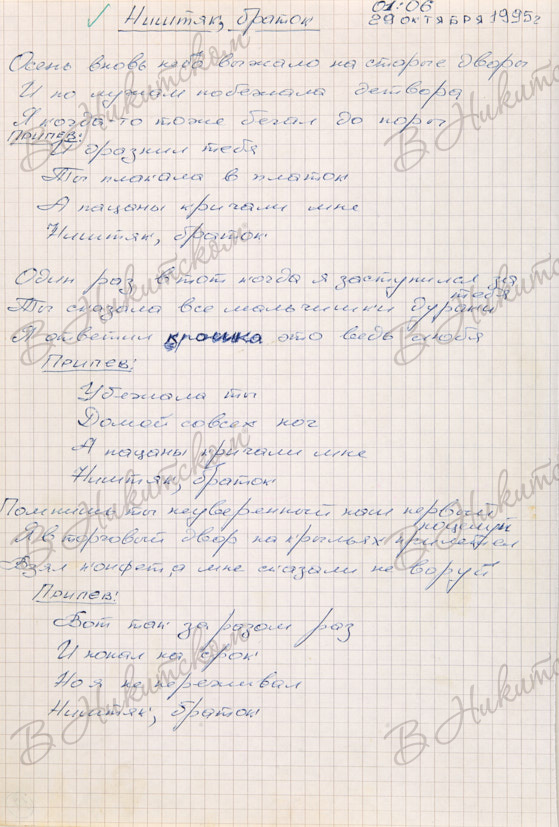 01:06
Ништяк, браток
29 ОКТЯБРЯ 1995г
Осень вновь выжало на старые дворы
И по лужам побежала детвора
Я когда-то тоже бегал до поры
Припев:
И дразнил тебя
Ты плакала в платок
А пацаны кричали мне
Ништяк, браток
Один раз тот когда я заступился за
тебя
Ты сказала все мальчишки дураки
Я ответил крошка это ведь любя
Припев:
Убежала ты
Домой со всех ног
А пацаны кричали мне
Ништяк, браток
Помнишь ты неуверенный наш первый
поцелуй
Я в торговый двор на крыльях прилетел
Взял конфет, а мне сказали не воруй
Припев:
Вот так за разом раз
И попал на срок
Но я не переживал
Ништяк, браток
В. Никитском
В. Никитском
В. Никитском
В. Никитском